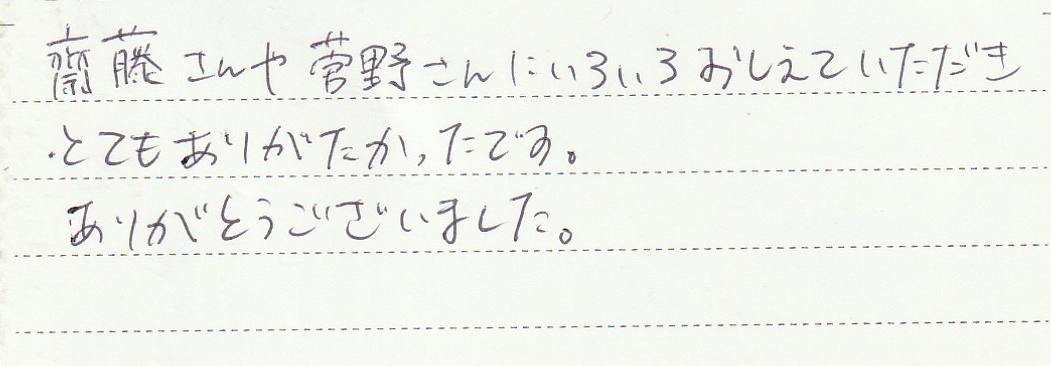 齋藤さんや菅野さんにいろいろおしえていただき
とてもありがたかったです。
ありがとうございました。